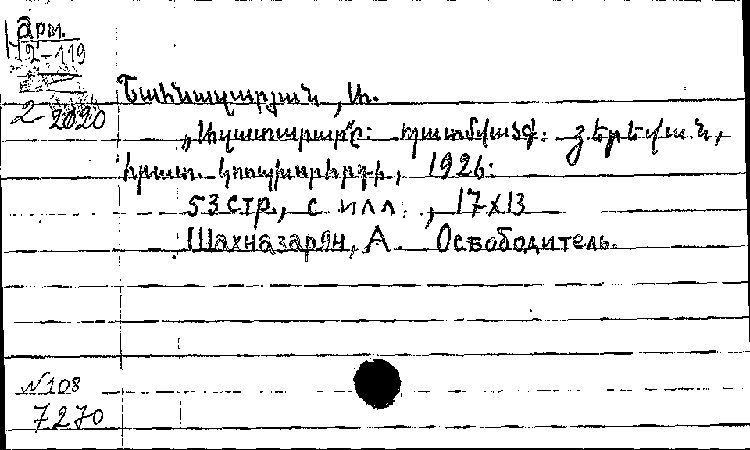 Арм.
12-119
2-2020
Շահնազարյան, Ա.
„Ազատարարը: պատմվածք: Յերեվան,
հրատ. կոոպխորհրդի, 1926:
53 стр., с илл., 17x13
Шахназарян, А. Освободитель.
№108
7270